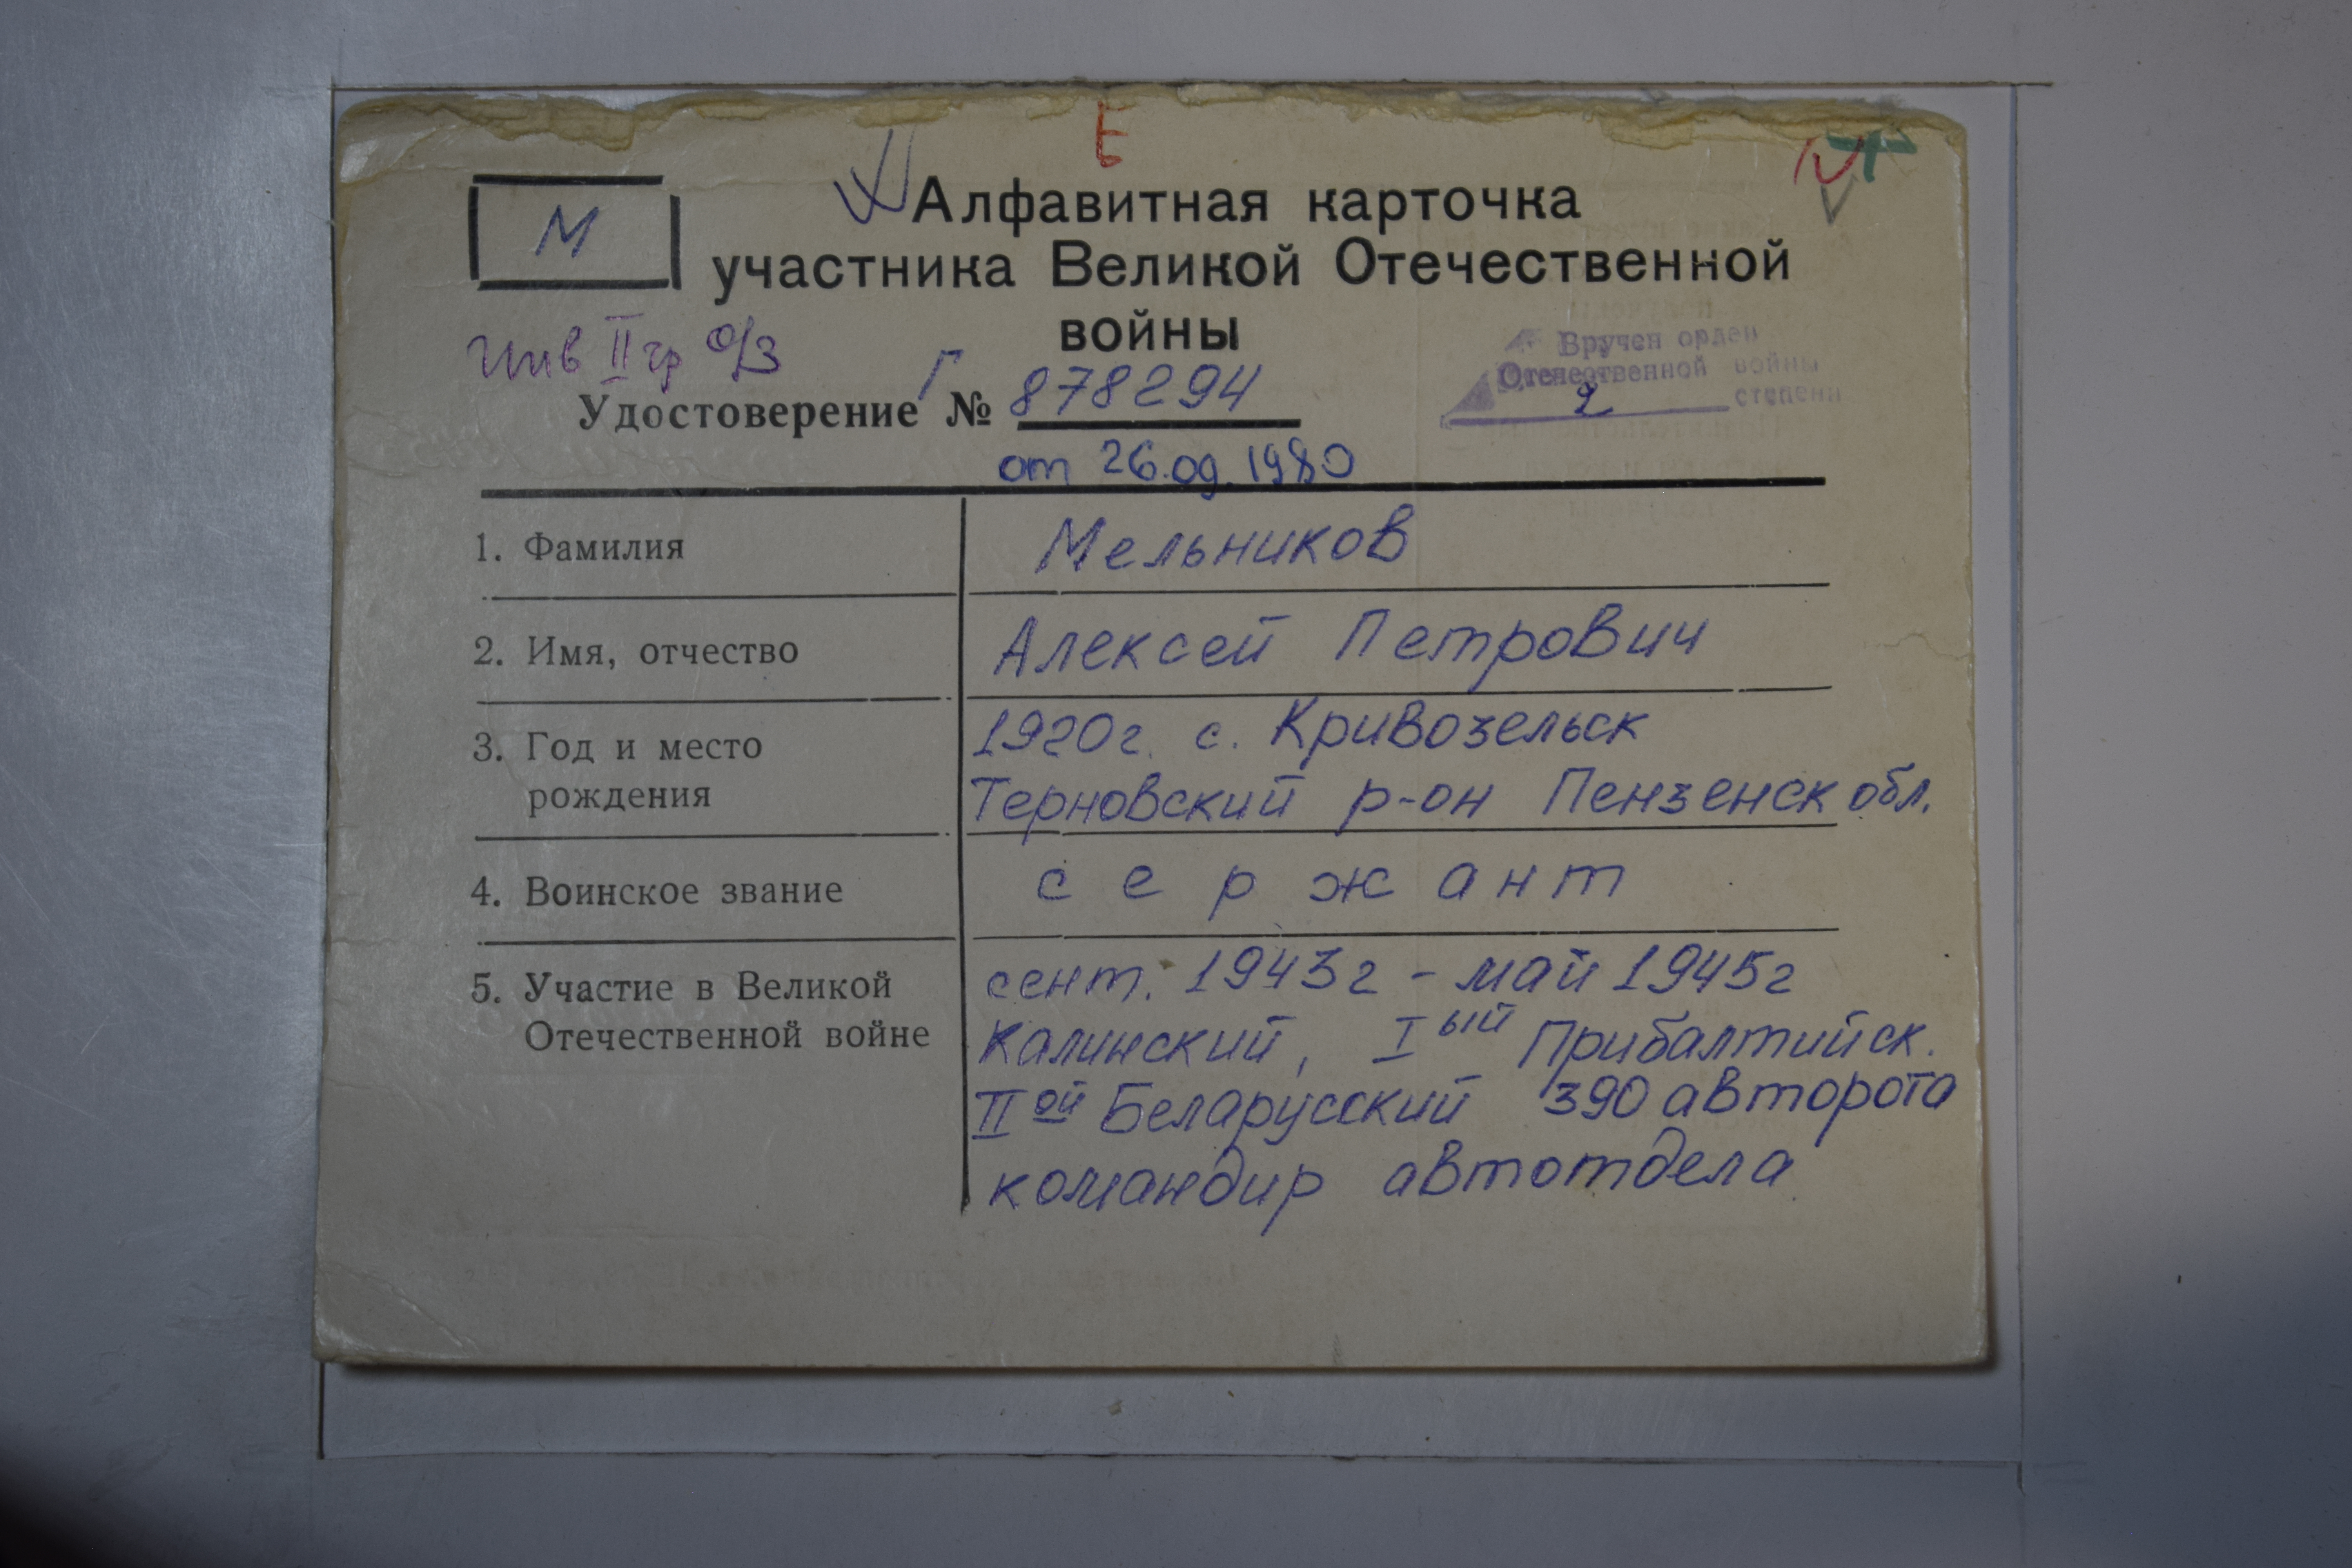 Е
М
Алфавитная карточка
участника Великой Отечественной
войны
Инв II гр о/з
Вручен орден
Отечественной войны
2 степени
Удостоверение Г № 878294
от 26.09.1980
1. Фамилия Мельников
2. Имя, отчество Алексей Петрович
3. Год и место 1920г. с. Кривозельск
рождения Терновский р-он Пензенск обл.
4. Воинское звание сержант
5. Участие в Великой сент. 1943г - май 1945г
Отечественной войне Калинский, Iый Прибалтийск.
IIой Беларусский 390 авторота
командир автотдела